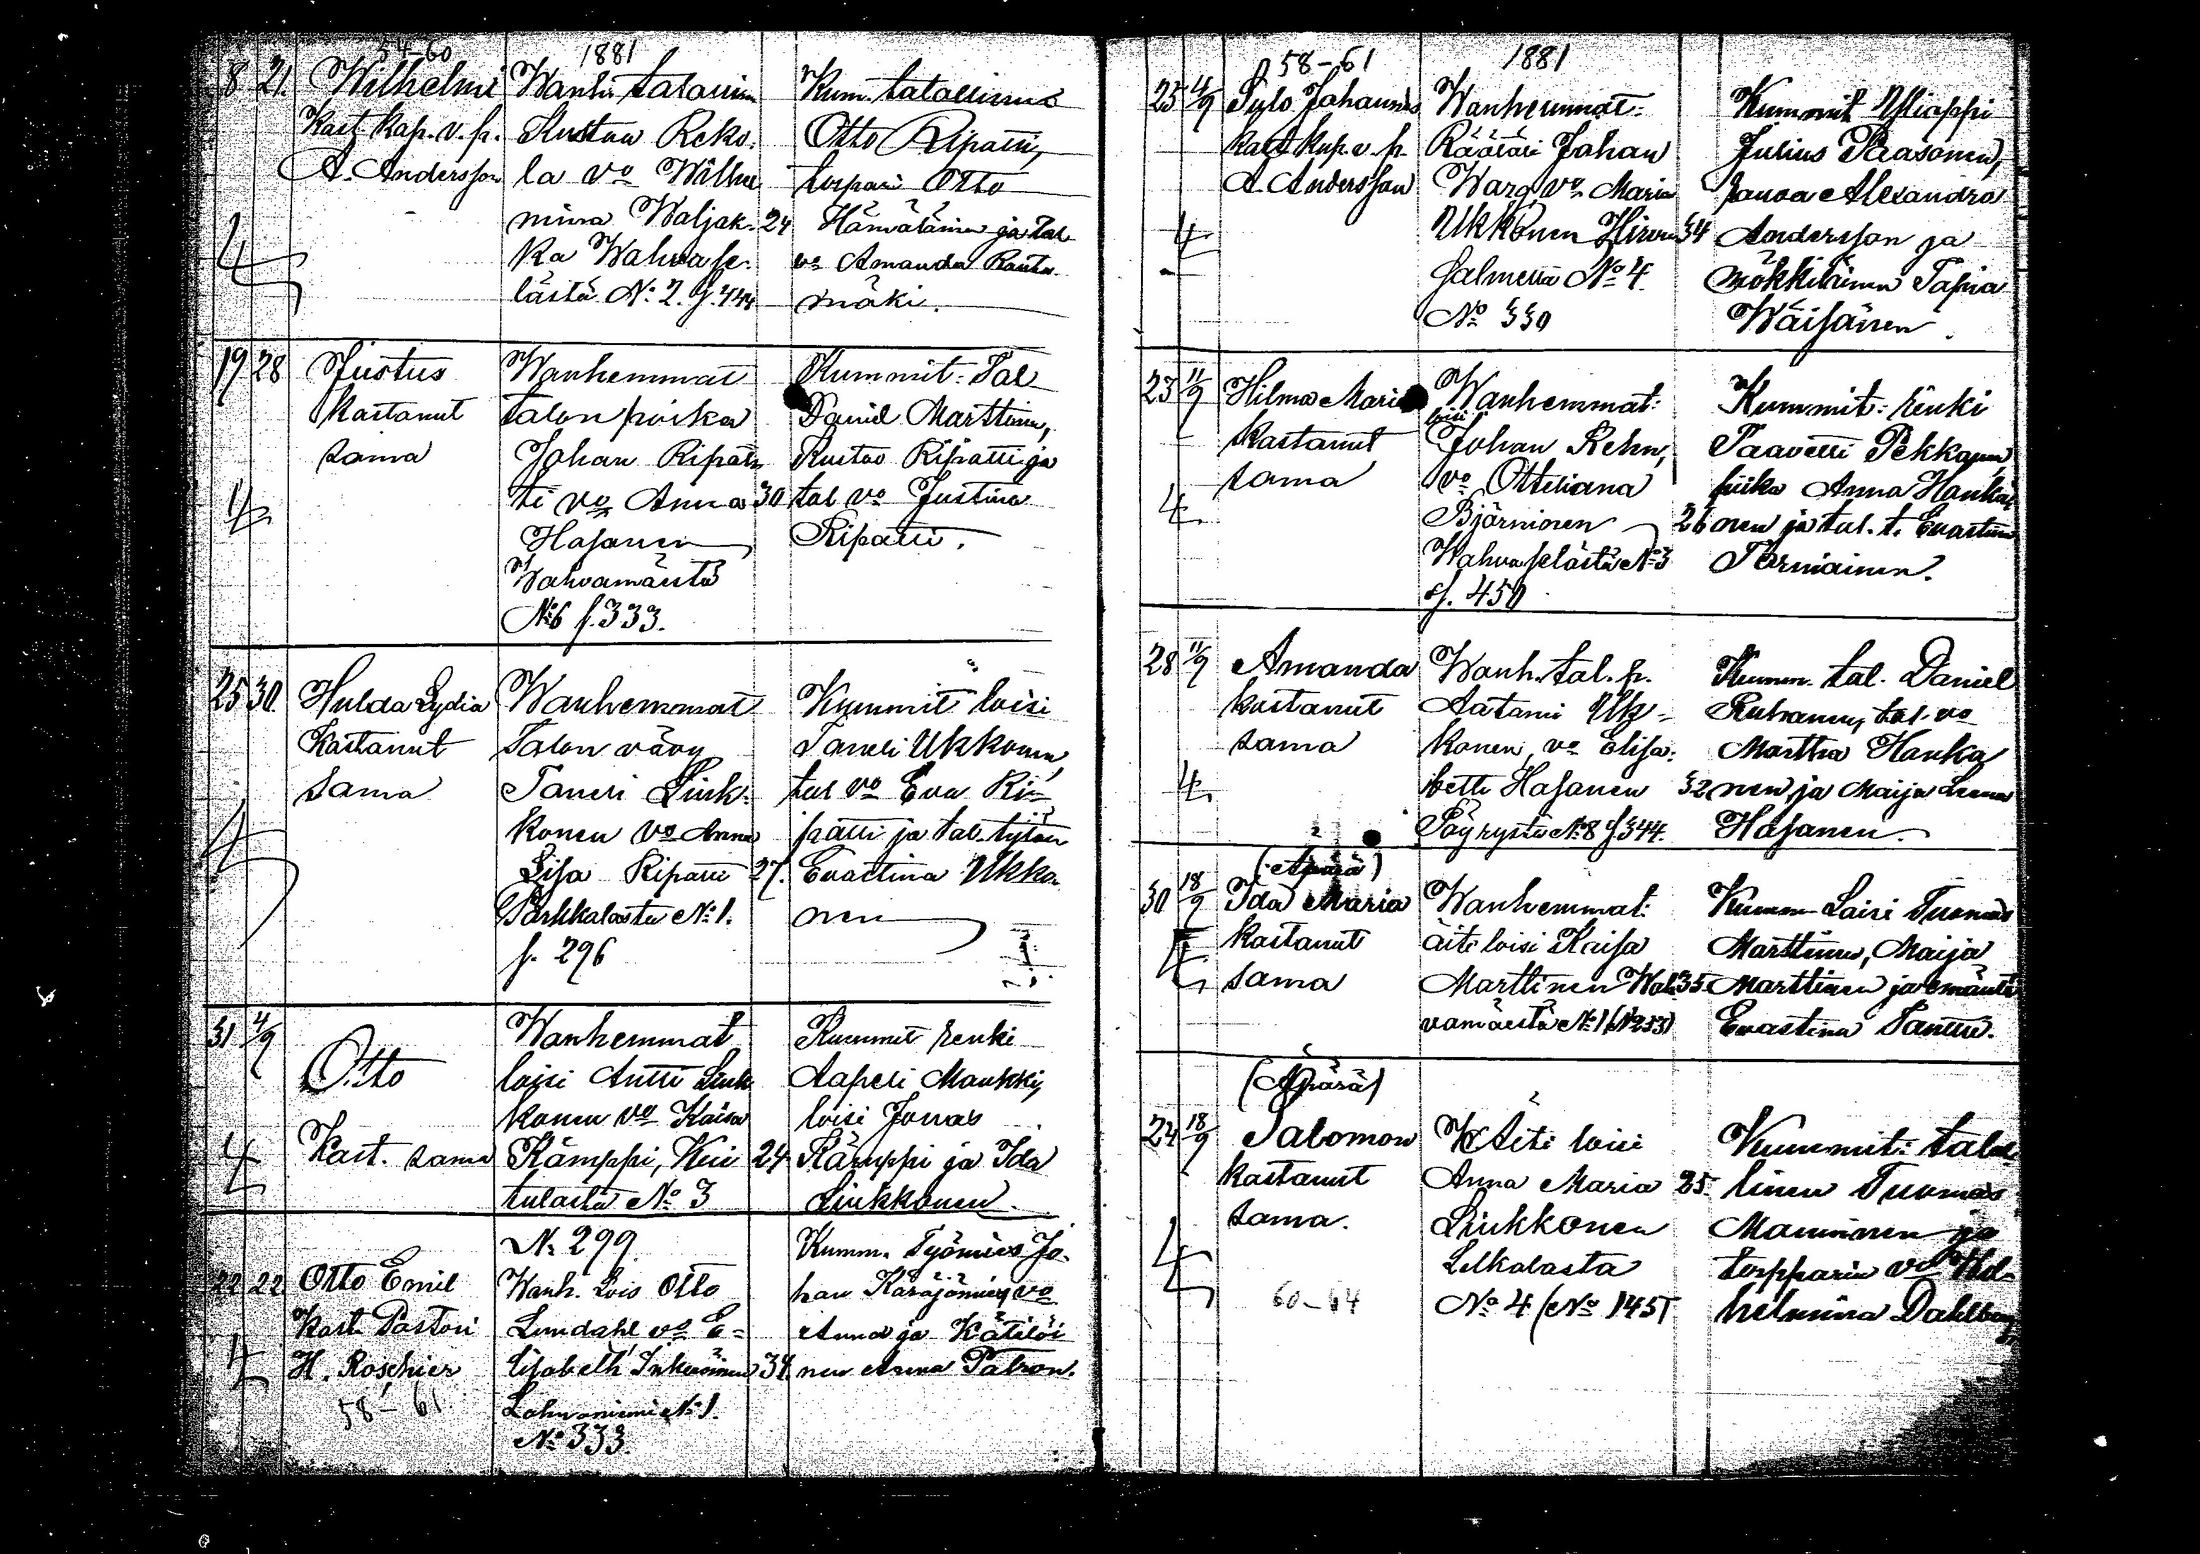 54-60
1881
8 21. Wilhelmi
Kast. kap. v. p.
A. Andersson
Kustaa Reko-
la vo Wilhel
miina Waljak- 24
ka Wahwase-
lästä No 2. f. 444
Kum. talollinen
Otto Ripatti,
torpari Otto
Hämäläinen ja tal.
vo Amanda Ranta
mäki.
19 28 Justus
Kastanut
sama
Wanhemmat
talon poika
Johan Ripat
ti vo Anna 30
Hasanen
Wahvamäestä
No 6 f. 333.
Kummit: Tal
David Marttinen,
Kustaa Ripatti ja
tal vo Justina
Ripatti.
25 30. Hulda Lydia
Kastanut
sama
Wanhemmat
Talon vävy
Taneli Liuk-
konen vo Anna
Lisa Ripatti 27.
Parkkalasta No 1.
f. 296
Kummit loisi
Taneli Ukkonen,
tal vo Eva Ri-
patti ja tal. tytön
Evastina Ukko
nen
31 4/9
Otto
Kast. sama
Wanhemmat
loisi Antti Liuk
konen vo Kaisa
Kämppi, 24
No 3
No 299
Kummit renki
Aapeli Maukki,
loisi Jonas
Kämppi ja Ida
Liukkonen.
22 22. Otto Emil
Kast. Pastori
H. Roschier
58-61
Wanh. Lois Otto
Lindahl vo E-
lisabeth Inkeroinen 34.
Lahvaniemi No 1.
No 333.
Kumm. Työmies Jo-
han Käräjämies, vo
Anna ja Kätilöi
nen Anna Patron.
58-61
1881
25 4/9 Sylo Johannes
kast kap. v. p.
A Andersson
Wanhemmat:
Räätäli Johan
Warg vo Maria
Ukkonen Hirven 34
salmella No 4.
No 330
Kummit
Julius Paasonen,
rouva Alexandra
Andersson ja
mökkiläinen Tapia
Wäisänen.
23 11/9 Hilma Maria
Kastanut
sama
Wanhemmat:
loisi
Johan Rehn,
vo Ottiliana
Björninen 26
Wahvaselästä No 3
f. 450
Kummit: renki
Taavetti Pekkanen
piika Anna Hanka
nen ja tal. t. Evastina
Törmäinen.
28 11/9 Amanda
kastanut
sama
Wanh. tal. p.
Aatami Uk-
konen, vo Elisa-
bette Hasanen 32
Pöyrystä No 8 f 344.
Kumm. tal. Daniel
Ruhanen, tal. vo
Martha Hanka
nen, ja Maija Leena
Hasanen.
(Äpärä)
30 18/9 Ida Maria
kastanut
sama
Wanhemmat:
äiti loisi Kaisa
Marttinen Wah 35.
vamäestä No 1 (No 233)
Kumm Loisi Tuomas
Marttinen, Maija
Marttinen ja emäntä
Evastina Tanttu.
(Äpärä)
24 18/9 Salomon
kastanut
sama.
60-64
Äiti loisi
Anna Maria 25.
Liukkonen
Lelkalasta
No 4 (No 145)
Kummit: talol
linen Tuomas
Manninen ja
torpparin vo Wil-
helmina Dahlberg